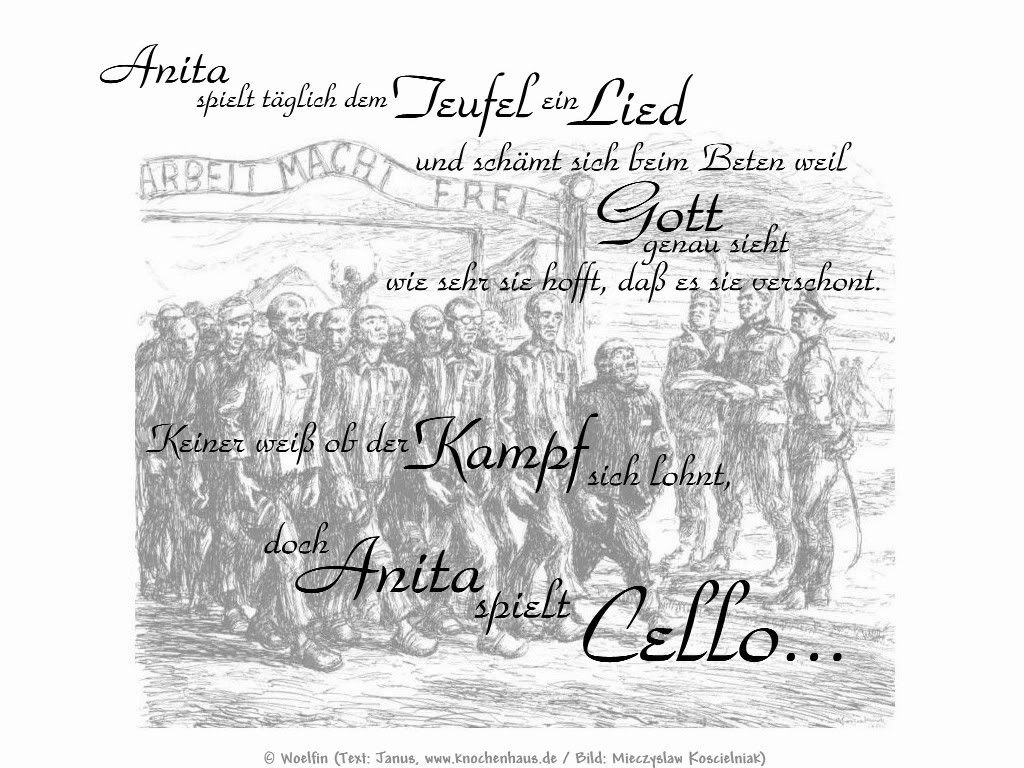 Anita
spielt täglich dem Teufel ein Lied
und schämt sich beim Beten weil
ARBEIT MACHT FREI
Gott
genau sieht
wie sehr sie hofft, daß es sie verschont.
Keiner weiß ob der Kampf sich lohnt,
doch
Anita
spielt Cello...
© Woelfin (Text: Janus, www.knochenhaus.de / Bild: Mieczyslaw Koscielniak)